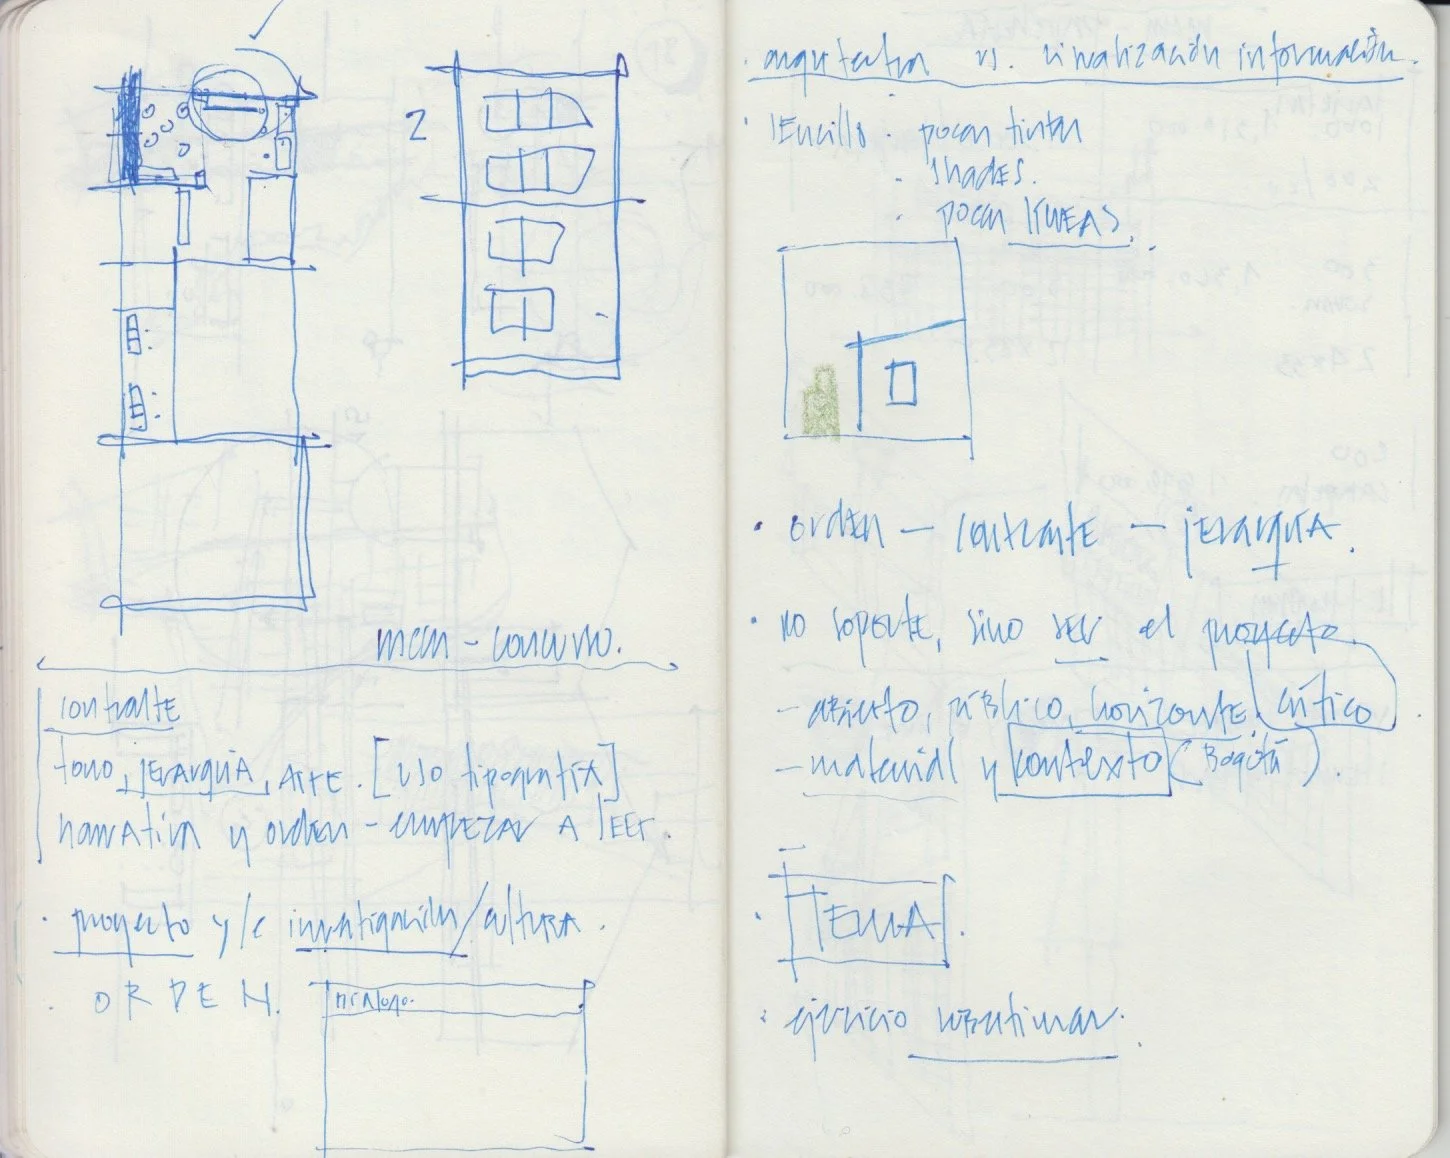 2
contraste
tono, jerarquía, ARTE. [uso tipografía]
narrativa y orden - empezar a leer.
· proyecto y/e investigación/cultura.
· ORDEN.
· arquitectura vs. visualización información.
· sencillo · pocas tintas
· shades.
· pocas líneas.
· orden — contraste — jerarquía.
· no soporte, sino ser el proyecto.
- abierto, público, horizonte, crítico
- material y contexto (Bogotá).
· TEMA.
· ejercicio